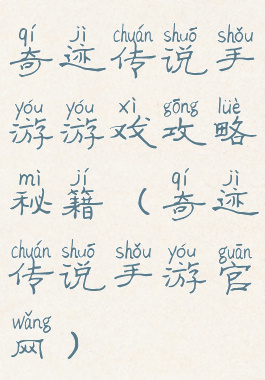 qí jì chuán shuō shǒu
奇迹传说手
yóu yóu xì gōng lüè
游游戏攻略
mì jí qí jì
秘籍(奇迹
chuán shuō shǒu yóu guān
传说手游官
wǎng
网)